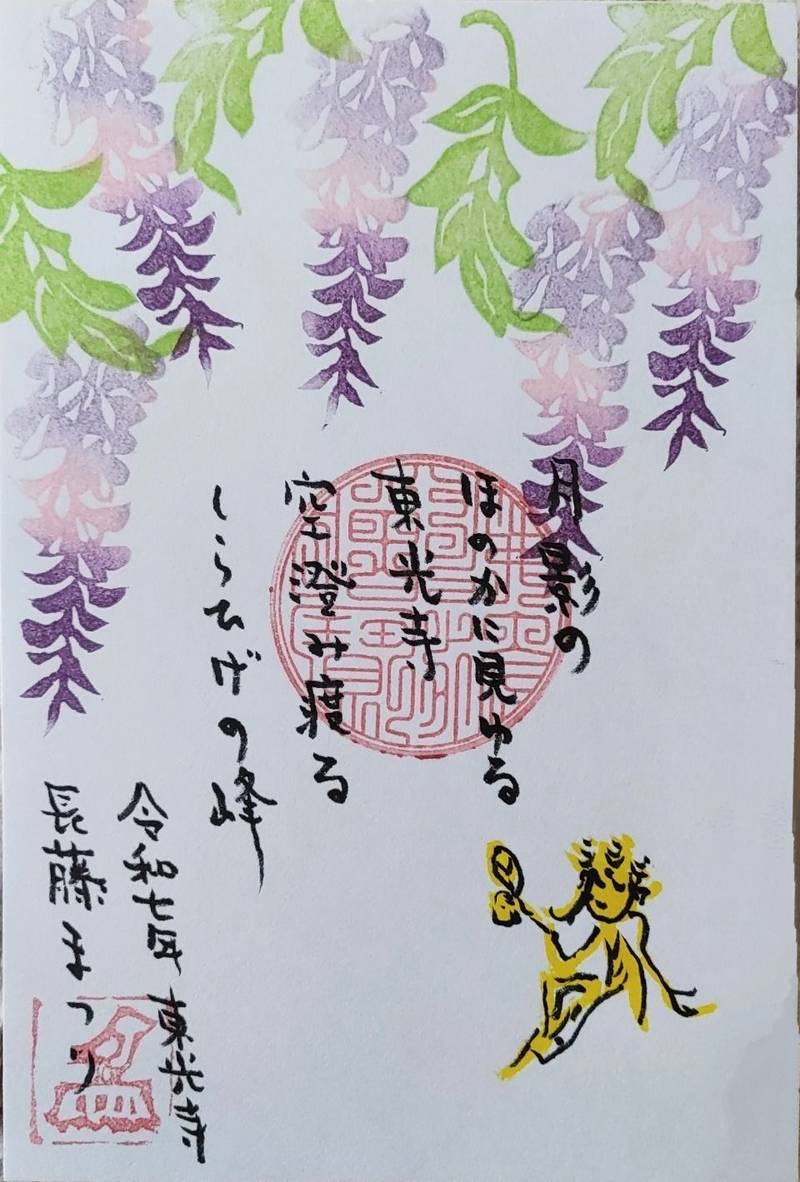 月影の
ほのかに見ゆる
東光寺
空澄み渡る
しらひげの峰
令和七年 東光寺
長藤まつり